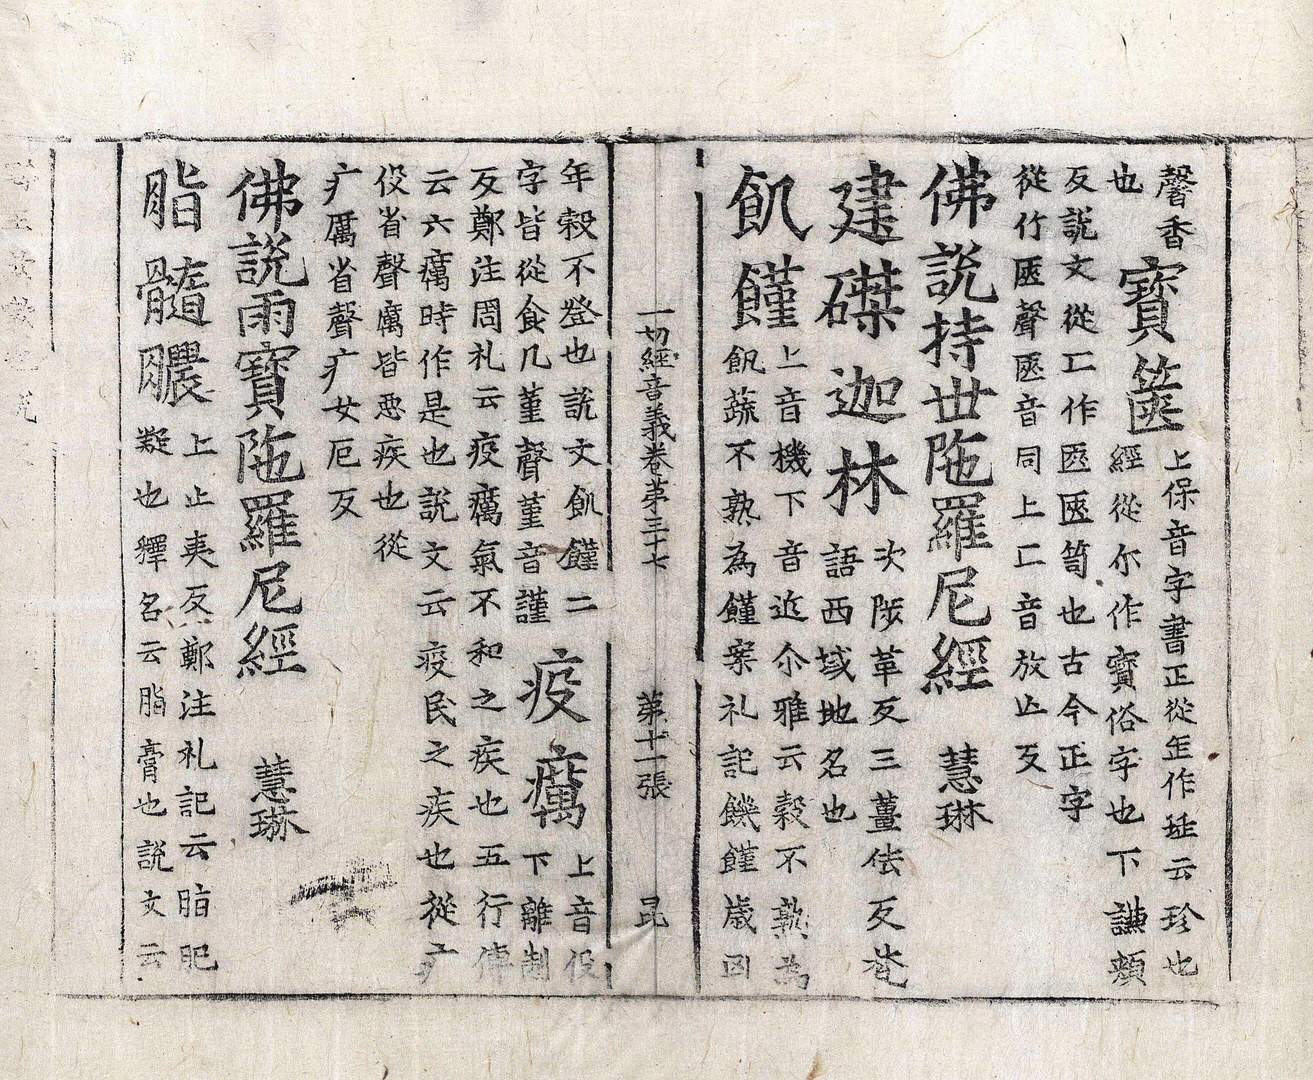 馨香
也
寶篋
上保音字書正從缶作珤云珍也
經從尒作寳俗字也下謙頰
反說文從匸作匧匧笥也古今正字
從竹匧聲匧音同上匸音放止反
佛說持世陁羅尼經 慧琳
建磔迦林
次陟革反三薑佉反梵
語西域地名也
飢饉
上音機下音近尒雅云穀不熟為
飢蔬不熟為饉案礼記饑饉歲凶
一切經音義卷苐三十七 苐十一張 昆
年穀不登也說文飢饉二
字皆從食几堇聲堇音謹
疫癘
上音役
下離制
反鄭注周礼云疫癘氣不和之疾也五行傳
云六癘時作是也說文云疫民之疾也從疒
役省聲癘皆惡疾也從
疒厲省聲疒女厄反
佛說雨寶陁羅尼經 慧琳
脂髓膿
上止夷反鄭注礼記云脂肥
凝也釋名云脂膏也說文云